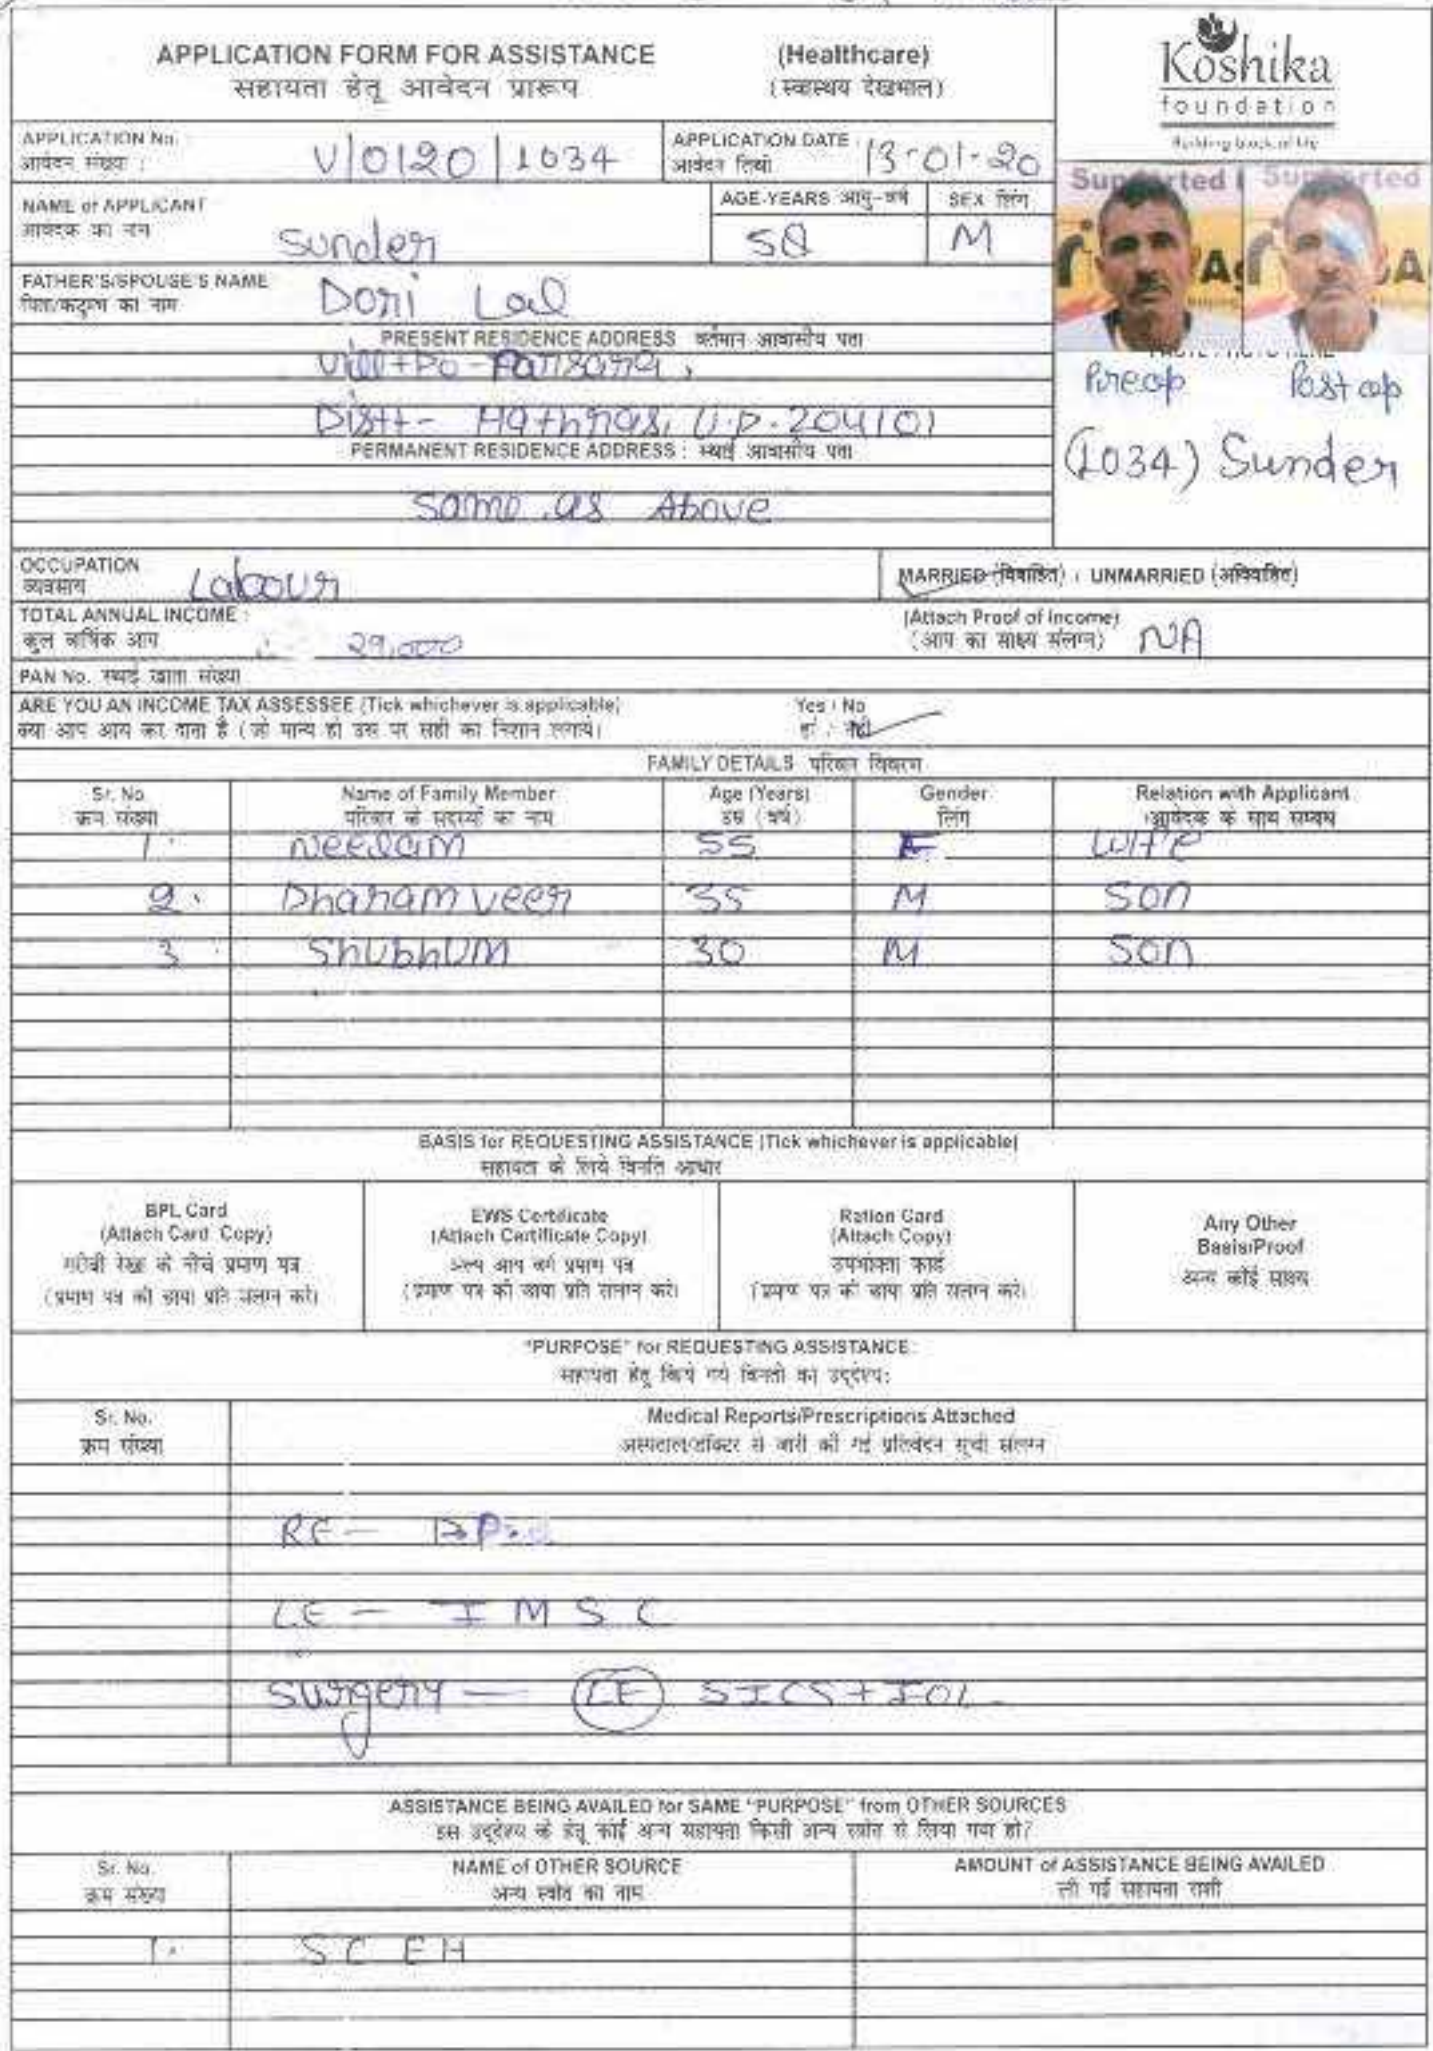 APPLICATION FORM FOR ASSISTANCE (Healthcare)
सहायता हेतू आवेदन प्रारूप (स्वास्थय देखभाल)
Koshika
foundation
Building block of life
APPLICATION No. :
आवेदन संख्या :
V|0120|1034
APPLICATION DATE :
आवेदन तिथी
13-01-20
NAME of APPLICANT
आवेदक का नाम
Sunder
AGE-YEARS आयु-वर्ष
SEX लिंग
M
FATHER'S/SPOUSE'S NAME
पिता/कटुम्ब का नाम
Dori Lal
PRESENT RESIDENCE ADDRESS वर्तमान आवासीय पता
Vill+Po-Parsara,
Distt- Hathras, U.P. 204101
PERMANENT RESIDENCE ADDRESS : स्थाई आवासीय पता
Same as Above
Supported
Supported
Preop Post op
(1034) Sunder
OCCUPATION
व्यवसाय
Labour
MARRIED (विवाहित) / UNMARRIED (अविवाहित)
TOTAL ANNUAL INCOME :
कुल वार्षिक आय
29,000
(Attach Proof of Income)
(आय का साक्ष्य संलग्न)
NA
PAN No. स्थाई खाता संख्या
ARE YOU AN INCOME TAX ASSESSEE (Tick whichever is applicable)
क्या आप आय कर दाता है (जो मान्य हो उस पर सही का निशान लगाये)
Yes / No
हां / नही
FAMILY DETAILS परिवार विवरण
Sr. No. Name of Family Member Age (Years) Gender Relation with Applicant
क्रम संख्या परिवार के सदस्यों का नाम उम्र (वर्ष) लिंग आवेदक के साथ सम्बंध
1. Neelam 55 F Wife
2. Dharamveer 35 M Son
3. Shubhum 30 M Son
BASIS for REQUESTING ASSISTANCE (Tick whichever is applicable)
सहायता के लिये विनति आधार
BPL Card
(Attach Card Copy)
गरीबी रेखा के नीचे प्रमाण पत्र
(प्रमाण पत्र की छाया प्रति संलग्न करे)
EWS Certificate
(Attach Certificate Copy)
अल्प आय वर्ग प्रमाण पत्र
(प्रमाण पत्र की छाया प्रति संलग्न करे)
Ration Card
(Attach Copy)
उपभोक्ता कार्ड
(प्रमाण पत्र की छाया प्रति संलग्न करे)
Any Other
Basis/Proof
अन्य कोई साक्ष्य
"PURPOSE" for REQUESTING ASSISTANCE:
सहायता हेतू किये गये विनती का उद्देश्य:
Sr. No. Medical Reports/Prescriptions Attached
क्रम संख्या अस्पताल/डॉक्टर से जारी की गई प्रतिवेदन सूची संलग्न
RE -
LE - I M S C
Surgery - (LE) SICS + IOL
ASSISTANCE BEING AVAILED for SAME "PURPOSE" from OTHER SOURCES
इस उद्देश्य के हेतू कोई अन्य सहायता किसी अन्य स्त्रोत से लिया गया हो?
Sr. No. NAME of OTHER SOURCE AMOUNT of ASSISTANCE BEING AVAILED
क्रम संख्या अन्य स्त्रोत का नाम ली गई सहायता राशी
1. SCEH